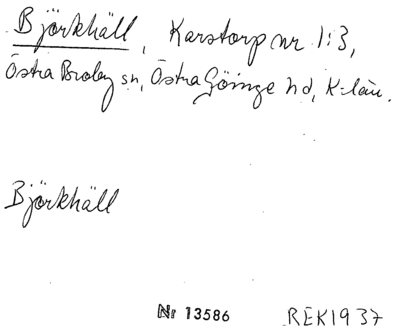 Björkhäll, Karstorp nr 1:3,
Östra Broby sn, Östra Göinge hd, K-län.
Björkhäll
Nr 13586 REK1937